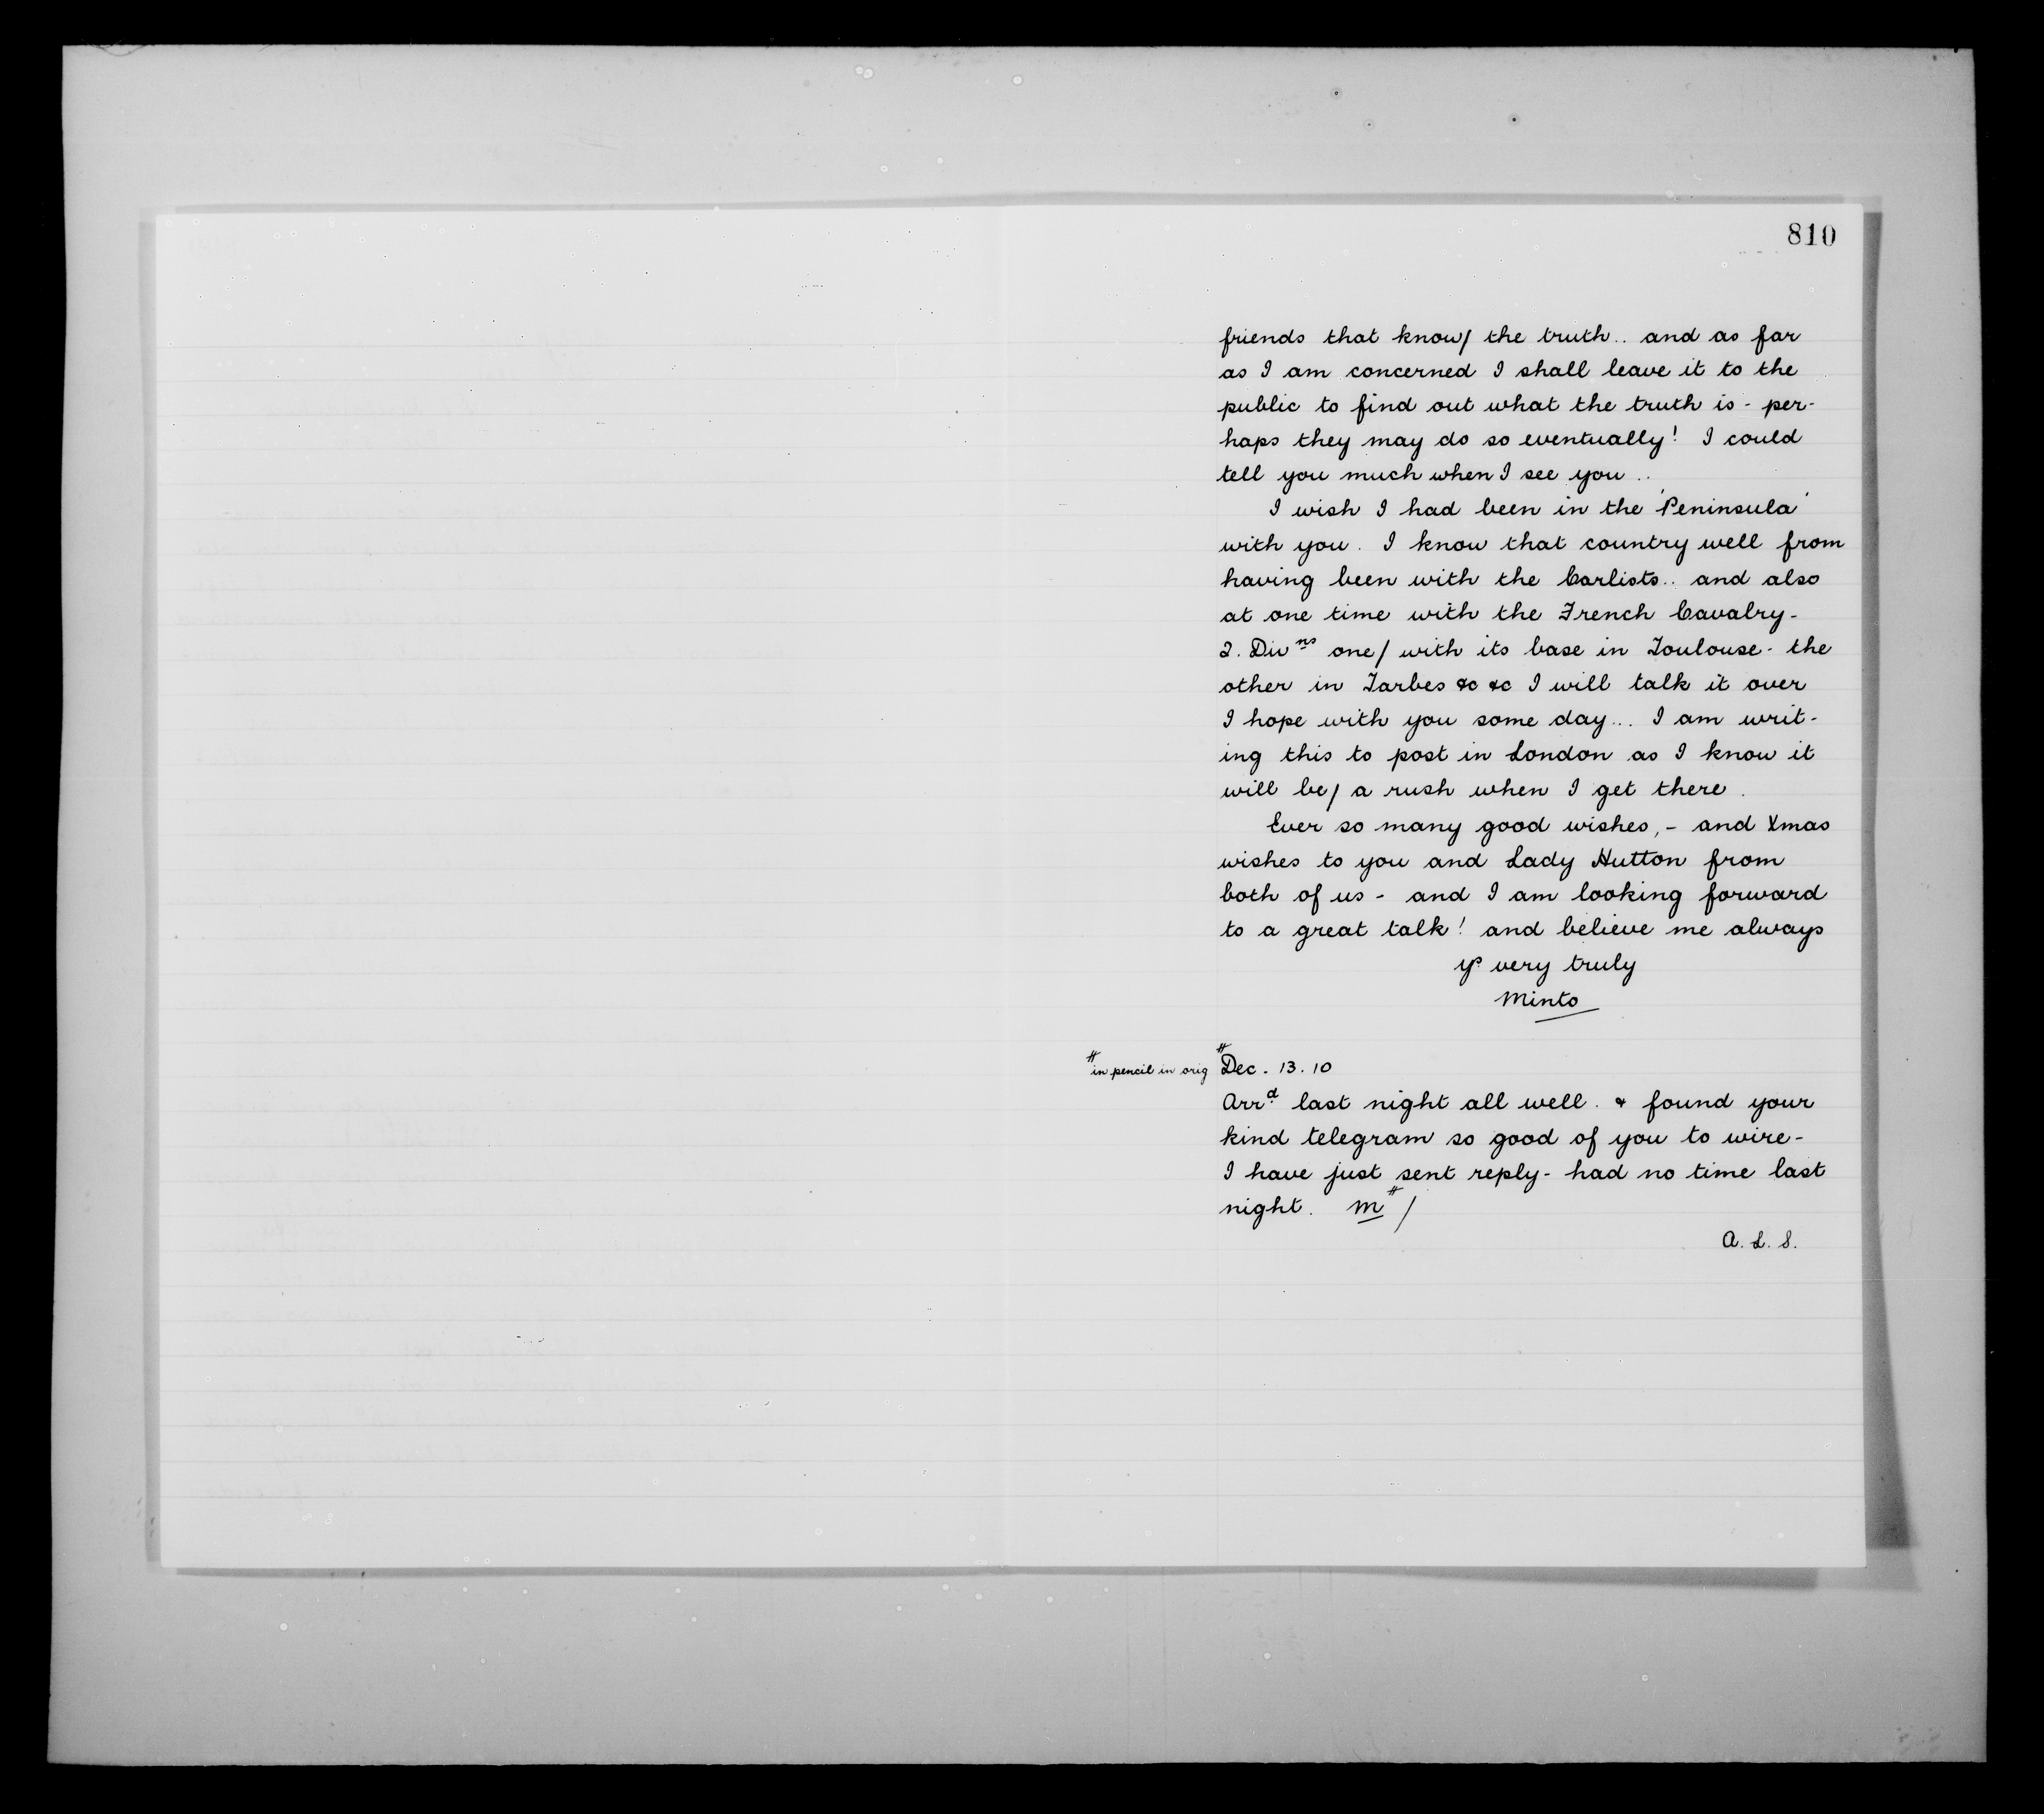 810
friends that know/ the truth.. and as far
as I am concerned I shall leave it to the
public to find out what the truth is - per-
haps they may do so eventually! I could
tell you much when I see you ..
I wish I had been in the 'Peninsula'
with you. I know that country well from
having been with the Carlists.. and also
at one time with the French Cavalry-
2. Divns one/ with its base in Toulouse - the
other in Tarbes &c &c I will talk it over
I hope with you some day... I am writ-
ing this to post in London as I know it
will be/ a rush when I get there.
Ever so many good wishes, - and Xmas
wishes to you and Lady Hutton from
both of us - and I am looking forward
to a great talk! and believe me always
yrs very truly
Minto
# in pencil in orig #Dec. 13. 10
Arrd last night all well. & found your
kind telegram so good of you to wire-
I have just sent reply- had no time last
night. M# /
A. L. S.